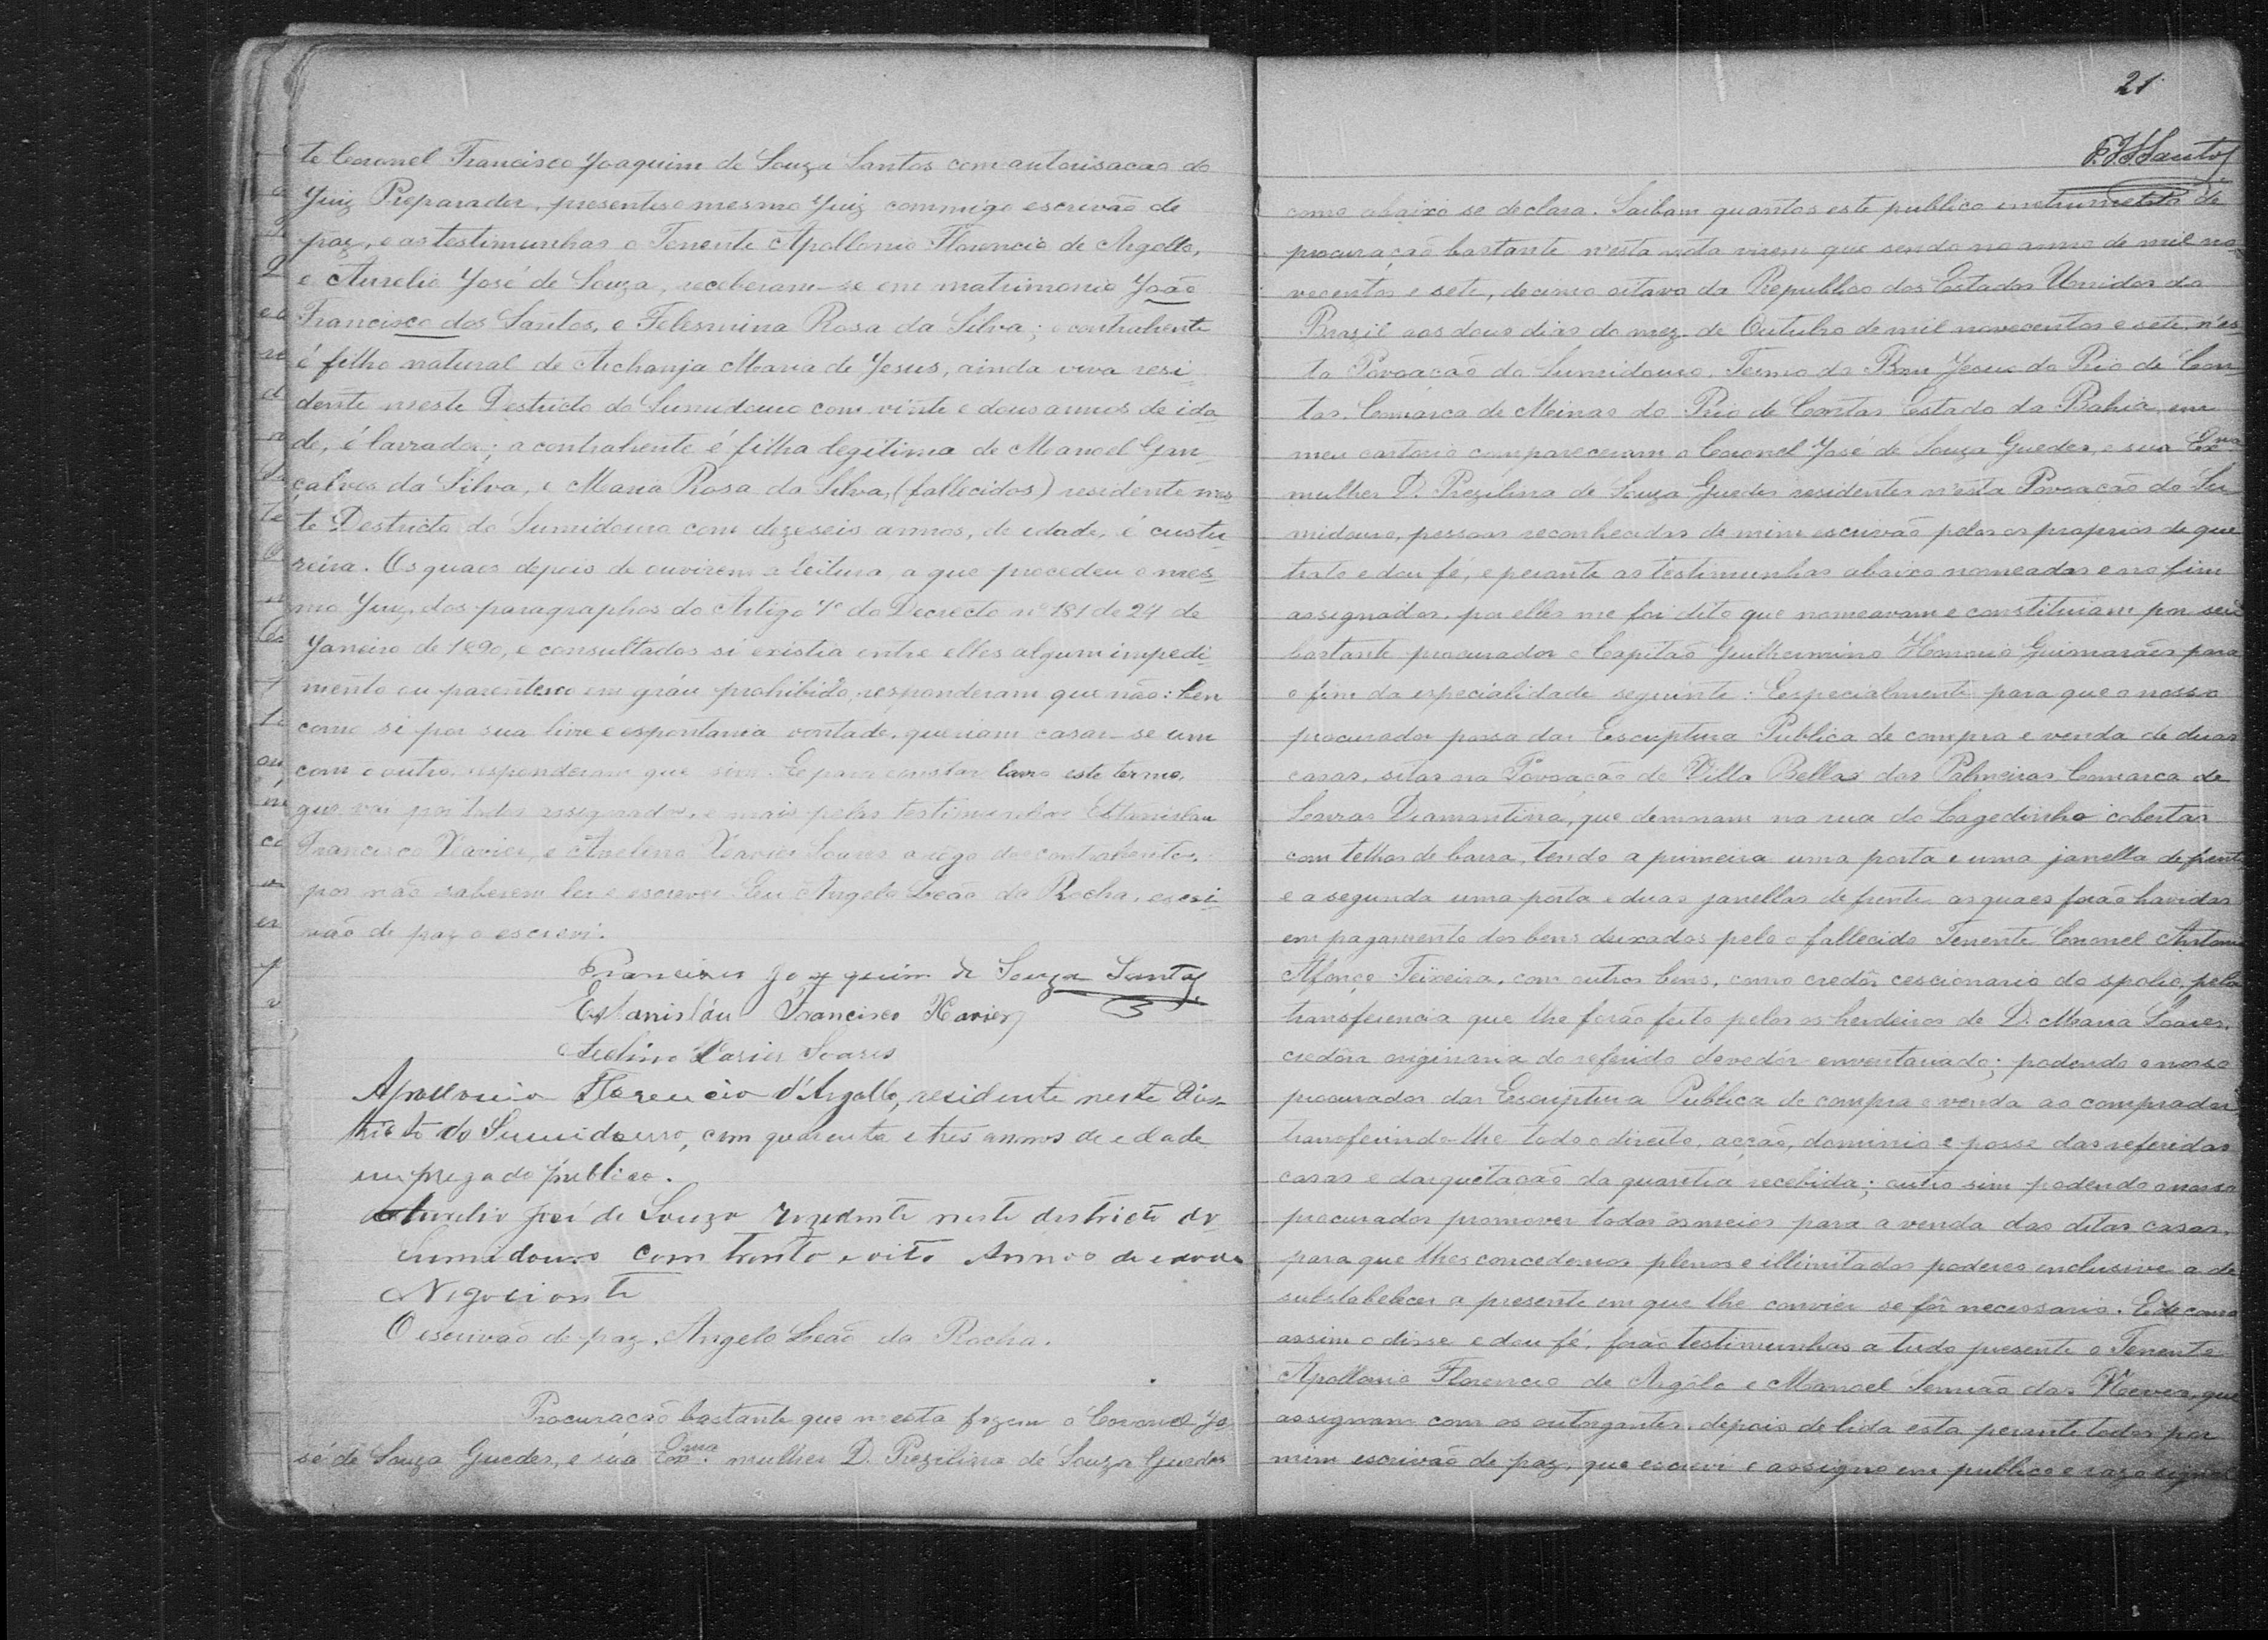 te Coronel Francisco Joaquim de Souza Santos com autorisacao do
Juiz Preparador, presentes o mesmo Juiz commigo escrivão de
paz, e as testimunhas o Tenente Apollonio Florencio de Argollo,
e Aurelio José de Souza, receberam-se em matrimonio João
Francisco dos Santos, e Felesmina Rosa da Silva; o contrahente
é filho natural de Archanja Maria de Jesus, ainda viva resi-
dente neste Destricto do Sumidouro com vinte e dous annos de ida
de, é lavrador; a contrahente é filha legitima de Manoel Gon-
çalves da Silva, e Maria Rosa da Silva, (fallecidos) residente nes
te Destricto do Sumidouro com dezeseis annos, de idade, é custu-
reira. Os quaes depois de ouvirem a leitura, a que procedeu o mes-
mo Juiz, dos paragraphos do Artigo 7º do Decrecto nº 181 de 24 de
Janeiro de 1890, e consultados si existia entre elles algum impedi-
mento ou parentesco em gráu prohibido, responderam que não: ben
como si por sua livre e espontania vontade, queriam casar-se um
com o outro, responderam que sim. E para constar lavro este termo,
que vai por todos assignados, e mais pelas testimunhas Estanislau
Francisco Xavier, e Avelino Xavier Soares a rogo dos contrahentes,
por não saberem ler e escrever. Eu Angelo Leão da Rocha, escri-
vão de paz o escrevi.
Francisco Joaquim de Souza Santos
Estanisláu Francisco Xavier
Avelino Xavier Soares
Apollonio Florencio d'Argollo, residente neste Dis-
tricto do Sumidouro, com quarenta e tres annos de edade
empregado publico.
Aurelio José de Souza rezedente neste destricto do
Sumidouro com trenta e oito Annos de edade
Negociante
O escrivão de paz, Angelo Leão da Rocha.
Procuração bastante que n'esta fazem o Coronel Jo
sé de Souza Guedes, e sua Exma. mulher D. Prezilina de Souza Guedes
21
F.J.S.Santos
como abaixo se declara. Saibam quantos este publico instrumento de
procuração bastante n'esta nota virem que sendo no anno de mil no-
vecentos e sete, decimo oitavo da Republica dos Estados Unidos do
Brazil aos dous dias do mez de Outubro de mil novecentos e sete, n'es-
ta Povoação do Sumidouro, Termo do Bom Jesus do Rio de Con-
tas, Comarca de Meinas do Rio de Contas Estado da Bahia, em
meu cartorio compareceram o Coronel José de Souza Guedes, e sua Exma
mulher D. Prezilina de Souza Guedes residentes n'esta Povoação do Su-
midouro, pessoas reconhecidas de mim escrivão pelos os proprios de que
trato e dou fé, e perante as testimunhas abaixo nomeadas e no fim
assignados, por elles me foi dito que nomeavam e constituiam por seu
bastante procurador o Capitão Guilhermino Honorio Guimarães para
o fim da especialidade seguinte: Eespecialmente para que o nosso
procurador possa dar Escriptura Publica de compra e venda de duas
casas, sitas na Povoação de Villa Bella das Palmeiras, Comarca de
Lavras Diamantina, que demnam na rua do Lagedinho cobertas
com telhas de barra, tendo a primeira uma porta e uma janella de frente
e a segunda uma porta e duas janellas de frente as quaes forão havidas
em pagamento dos bens deixados pelo o fallecido Tenente Coronel Antonio
Afonço Teixeira, com outros bens, como credôr cescionario do spolio, pela
transferencia que lhe forão feito pelos os herdeiros de D. Maria Soares,
credôra originaria do referido devedôr enventariado; podendo o nosso
procurador dar Escriptura Publica de compra e venda ao comprador
transferindo-lhe todo o direito, acção, dominio e posse das referidas
casas e dar quetação da quantia recebida; outro sim podendo o nosso
procurador promover todos os meios para a venda das ditas casas,
para que lhes concedemos plenos e illimitados poderes inclusive a de
substabelecer a presente em que lhe convier se fôr necessario. E de como
assim o disse e dou fé, forão testimunhas a tudo presente o Tenente
Apollonio Florencio de Argôlo e Manoel Semião das Neves, que
assignam com os outorgantes, depois de lida esta perante todos por
mim escrivão de paz, que escrevi e assigno em publico e razo signal